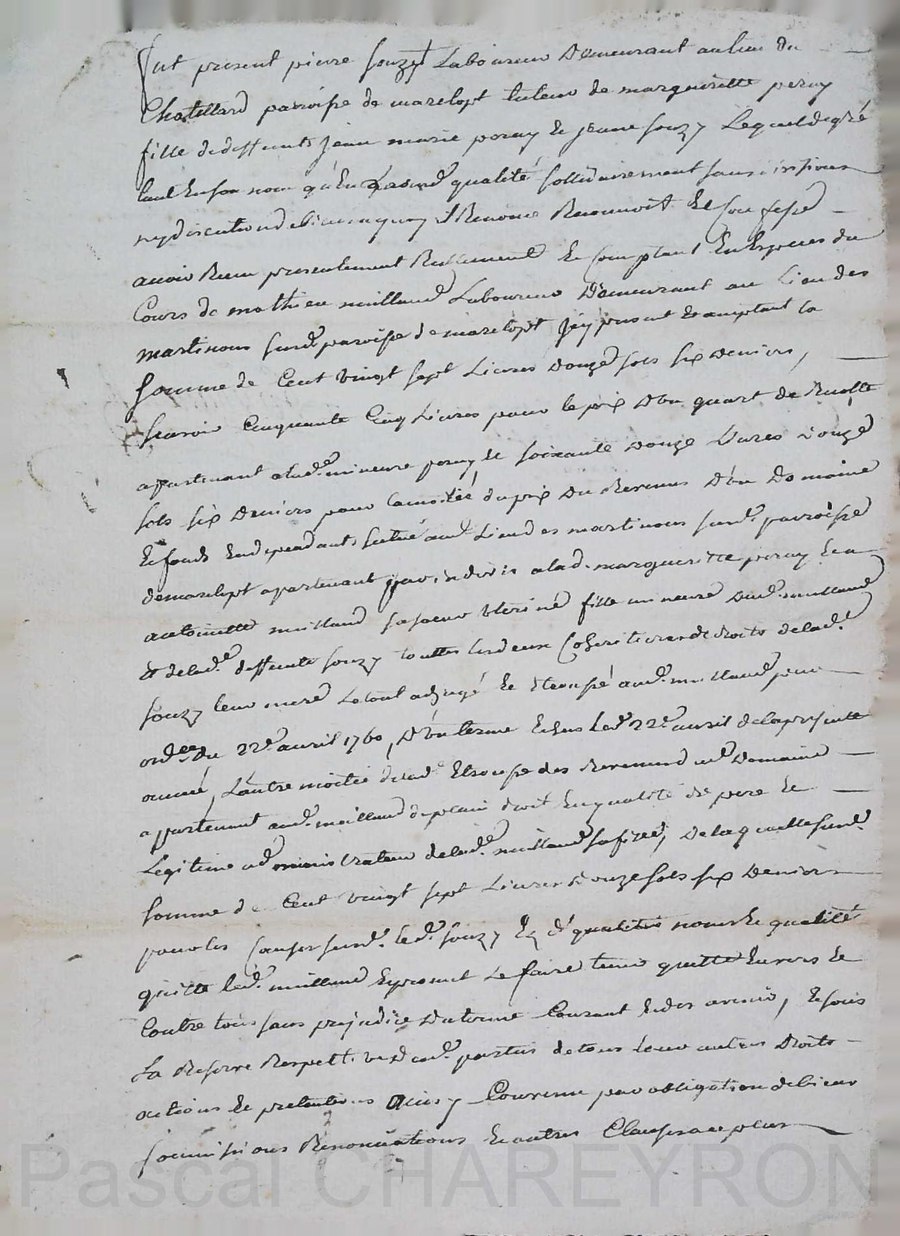 fut present pierre souzy Laboureur Demeurant au lieu du
Chatellard paroisse de marclopt tuteur de margueritte perey
fille de deffunts Jean marie perey et jeane souzy Lequel de gré
tant en son nom qu'en qualité sollidairement sans division
ny discution de biens a quoy Il Renonce Reconnoit Et confesse
avoir Receu presentement Reellement Et Comptant En Especes du
Cours de mathieu mailland Laboureur Demeurant au Lieu des
martinous surd. paroisse de marclopt Jcy present Et acceptant la
somme de Cent vingt sept Livres Douze sols six Deniers,
scavoir Cinquante Cinq Livres pour le prix D'un quart de Recolte
appartenant a lad.e mineure perey Et soixante Douze Livres Douze
sols six Deniers pour la moitié du prix Du Revenus D'un Domaine
Et fonds En dependants scitué aud. Lieu des martinous surd. parroisse
de marclopt apartenant par indivis a lad. margueritte perey Et a
antoinette mailland sa soeur Uterine fille mineure Dud. mailland
Et de lad.e deffunte souzy touttes Les deux Coheritieres de droits de lad.e
souzy leur mere Le tout adjugé Et aud. mailland par
ord.ce du 22.e avril 1760, D'un terme Echus Led. 22.e avril de la presente
année, L'autre moitié de lad. des Revenus ud. Domaine
appartenant aud. mailland de plain droit En qualité de pere Et
Legitime administrateur de lad. mailland sa fille, De laquelle surd.
somme de Cent vingt sept Livres Douze sols six Deniers
pour les Causes surd. Led. souzy Ez d. qualités nomme Et qualité
quitte led. mailland Et promet Le faire tenir quitte Envers Et
Contre tous sans prejudice Du terme Courant Et des avenir, Et sous
La Reserve Respettive desd. parties de tous Leur autres Droits
actions Et pretentions Ainsy Convenu par obligation de biens
soumissions Renonciations Et autres Clauses
Pascal CHAREYRON